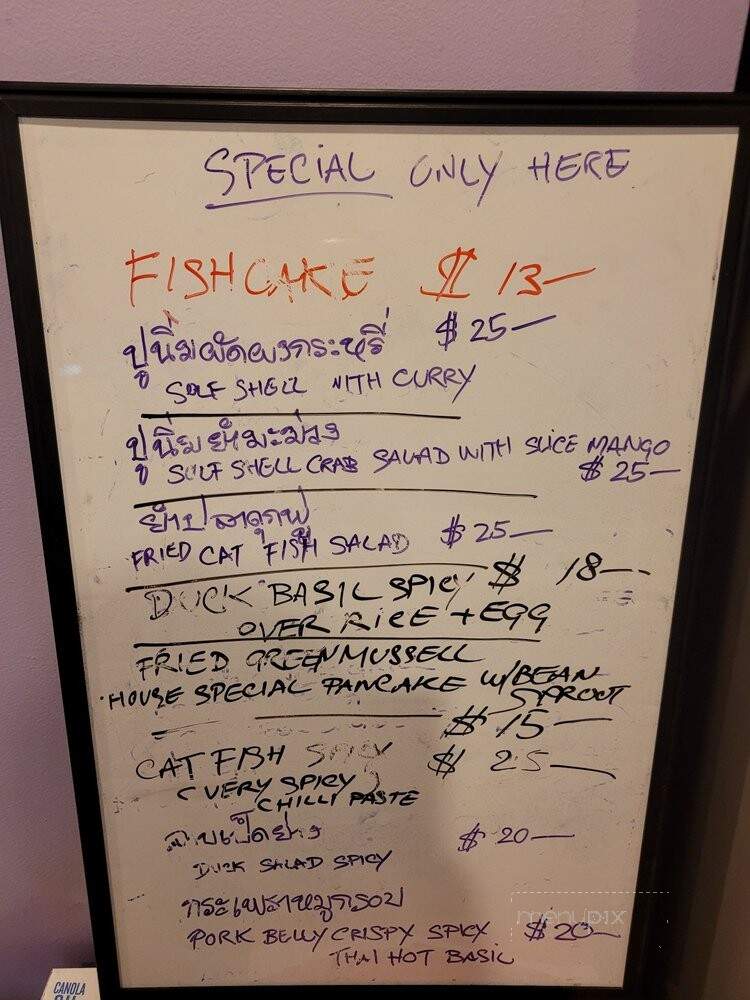 SPECIAL ONLY HERE
FISHCAKE $ 13—
ปูนิ่มผัดผงกระหรี่ $ 25—
SOLF SHELL WITH CURRY
ปูนิ่มยำมะม่วง
SOLF SHELL CRAB SALAD WITH SLICE MANGO
$ 25—
ยำปลาดุกฟู
FRIED CAT FISH SALAD $ 25—
DUCK BASIL SPICY $ 18—
OVER RICE + EGG
FRIED GREEN MUSSELL
HOUSE SPECIAL PANCAKE W/BEAN
SPROUT
$ 15—
CAT FISH SPICY $ 25—
(VERY SPICY)
CHILLI PASTE
ลาบเป็ดย่าง $ 20—
DUCK SALAD SPICY
กระเพราหมูกรอบ
PORK BELLY CRISPY SPICY $20—
THAI HOT BASIL
menupix
CANOLA